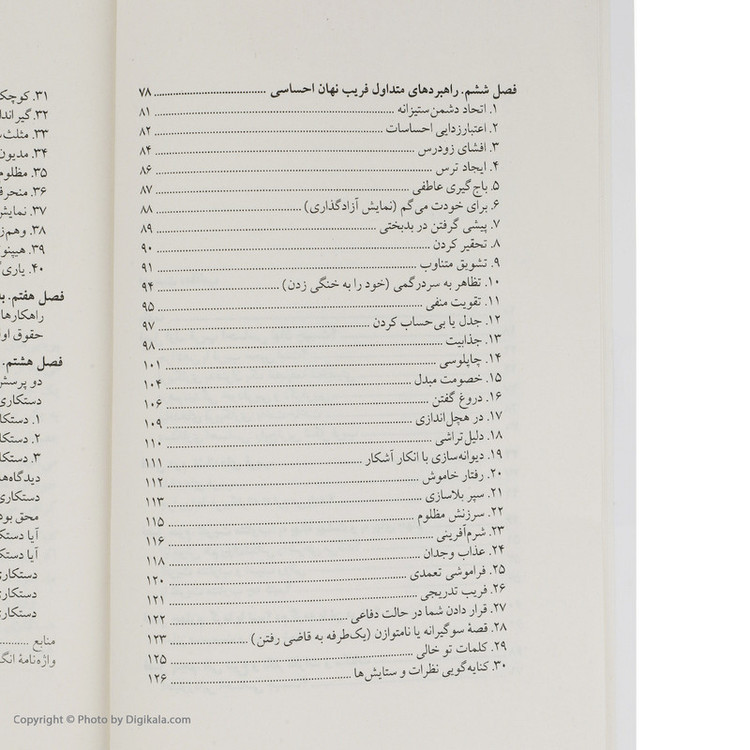 فصل ششم. راهبردهای متداول فریب نهان احساسی ........ ۷۸
۱. اتحاد دشمن‌ستیزانه ........ ۸۱
۲. اعتبارزدایی احساسات ........ ۸۲
۳. افشای زودرس ........ ۸۴
۴. ایجاد ترس ........ ۸۶
۵. باج‌گیری عاطفی ........ ۸۷
۶. برای خودت می‌گم (نمایش آزادگذاری) ........ ۸۸
۷. پیشی گرفتن در بدبختی ........ ۸۹
۸. تحقیر کردن ........ ۹۰
۹. تشویق متناوب ........ ۹۱
۱۰. تظاهر به سردرگمی (خود را به خنگی زدن) ........ ۹۴
۱۱. تقویت منفی ........ ۹۵
۱۲. جدل یا بی‌حساب کردن ........ ۹۷
۱۳. جذابیت ........ ۹۸
۱۴. چاپلوسی ........ ۱۰۱
۱۵. خصومت مبدل ........ ۱۰۴
۱۶. دروغ گفتن ........ ۱۰۶
۱۷. در هچل‌اندازی ........ ۱۰۹
۱۸. دلیل‌تراشی ........ ۱۱۰
۱۹. دیوانه‌سازی با انکار آشکار ........ ۱۱۱
۲۰. رفتار خاموش ........ ۱۱۲
۲۱. سپر بلاسازی ........ ۱۱۳
۲۲. سرزنش مظلوم ........ ۱۱۵
۲۳. شرم‌آفرینی ........ ۱۱۶
۲۴. عذاب وجدان ........ ۱۱۸
۲۵. فراموشی تعمدی ........ ۱۲۰
۲۶. فریب تدریجی ........ ۱۲۱
۲۷. قرار دادن شما در حالت دفاعی ........ ۱۲۲
۲۸. قصهٔ سوگیرانه یا نامتوازن (یک‌طرفه به قاضی رفتن) ........ ۱۲۳
۲۹. کلمات تو خالی ........ ۱۲۵
۳۰. کنایه‌گویی نظرات و ستایش‌ها ........ ۱۲۶
۳۱.
۳۲.
۳۳.
۳۴. مدیون
۳۵. مظلوم
۳۶.
۳۷.
۳۸.
۳۹.
۴۰.
فصل هفتم.
راهکارها
حقوق
فصل هشتم.
دو
دستکاری
۱.
۲.
۳.
دستکاری
محق
آیا
آیا
منابع ........
واژه‌نامهٔ
Copyright © Photo by Digikala.com